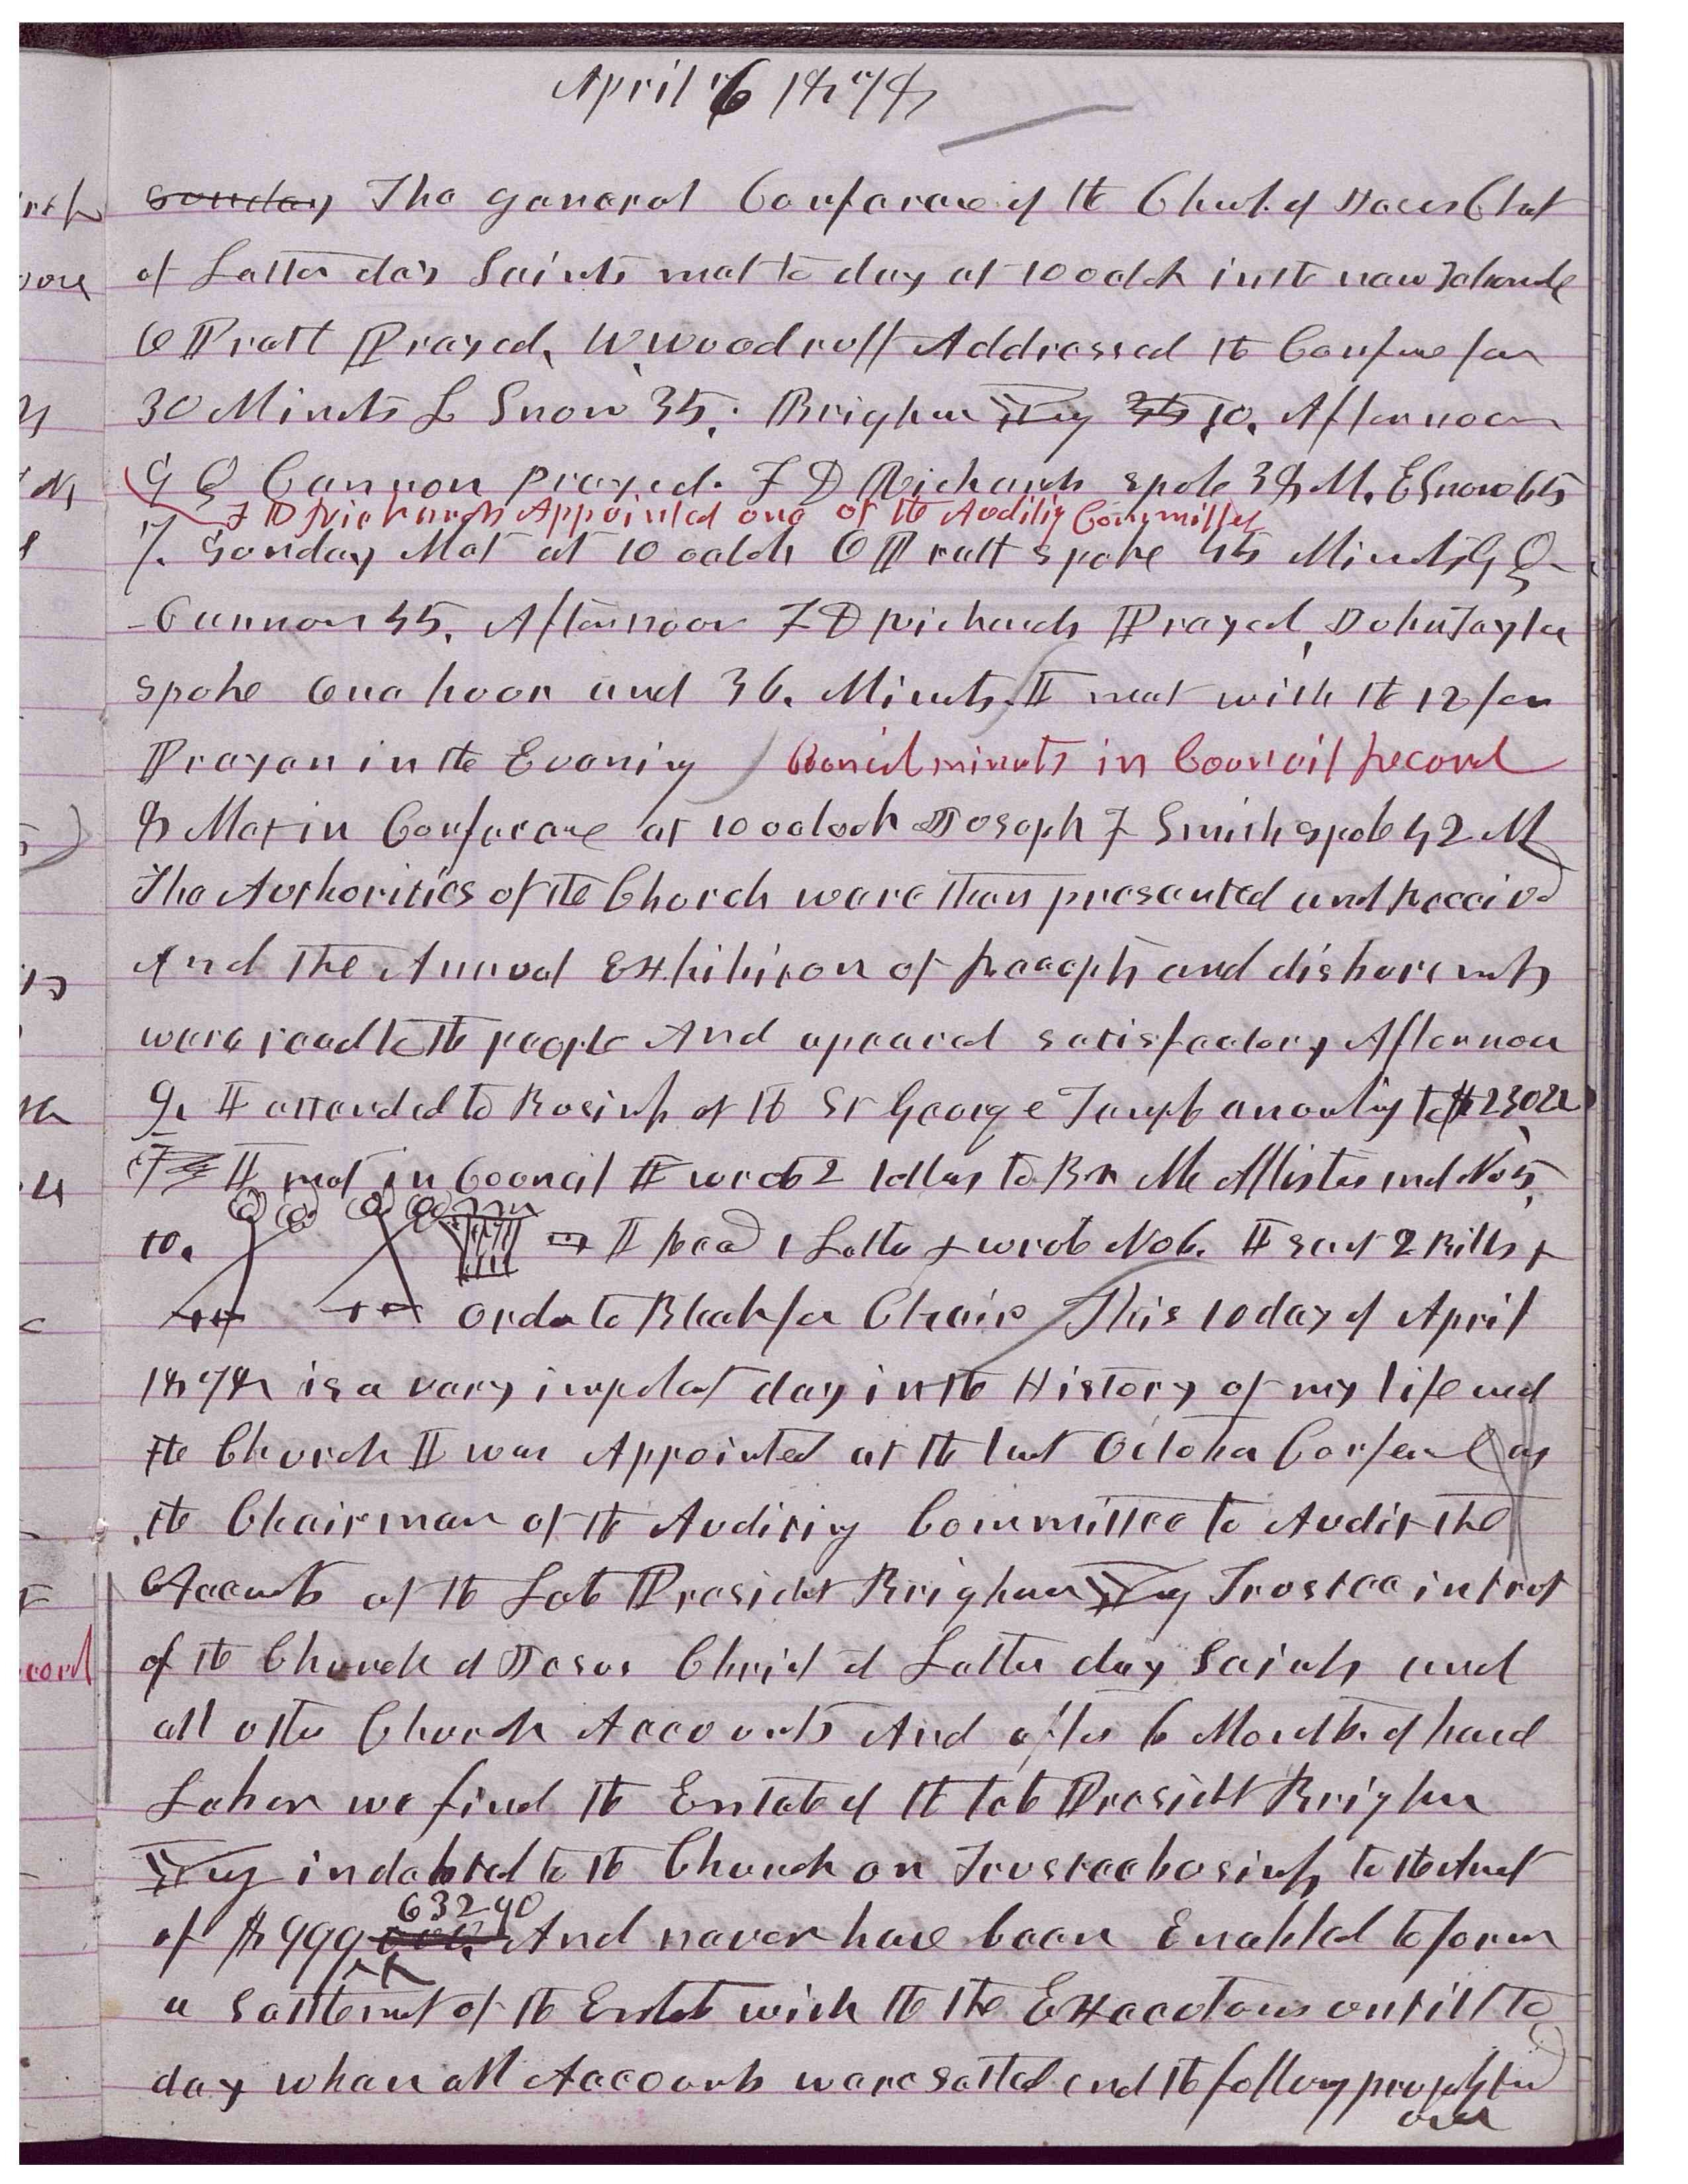 April 6 1878
Sunday The general Conference of the Church of Jesus Christ
of Latter days Saints met to day at 10 oclok in the new Tabernacle
O Pratt Prayed, W. Woodruff Addressed the Confrence for
30 Minuts L Snow 35. Brigham Young 35 10. Afternoon
G Q Cannon Prayed. F D Richards spoke 38 M. E Snow 65
F D Richards Appointed one of the Auditig Committee
7. Sunday Met at 10 oclok O Pratt spoke 45 Minuts G Q
Cannon 45. Afternoon F D Richards Prayed, John Taylor
spoke One hour and 36. Minuts. I met with the 12 for
Prayer in the Evening Council minuts in Council Record
8 Met in Conferance at 10 oclock Joseph F Smith spoke 42 M
The Authorities of the Church were then presented and Received
And the Annual Exhibition of Receipts and disbursments
were read to the people And apeared satisfactory Afternoon
9. I attended to Business of the St George Temple amounting to $2302
I met in Council I wrote 2 letters to Br McAllister and No 5,
10. I Recd 1 Letter & wrote No 6. I sent 2 Bills &
order to Bleak for Chairs This 10 day of April
1878 is a very important day in the History of my life and
the Church I was Appointed at the last October Conference as
the Chairman of the Auditing Committee to Audit the
Accounts of the Late President Brigham Young Trustee in trust
of the Church of Jesus Christ of Latter day Saints and
all other Church Accounts And after 6 Months of hard
Labor we find the Estate of the late President Brigham
Young indebted to the Church on Trustee business to the Amount
63290
of $999000. And never have been Enabled to form
a settlement of the Estate with the the Executors untill to
day when all Accounts were settled and the following property turned
over
rch
cord